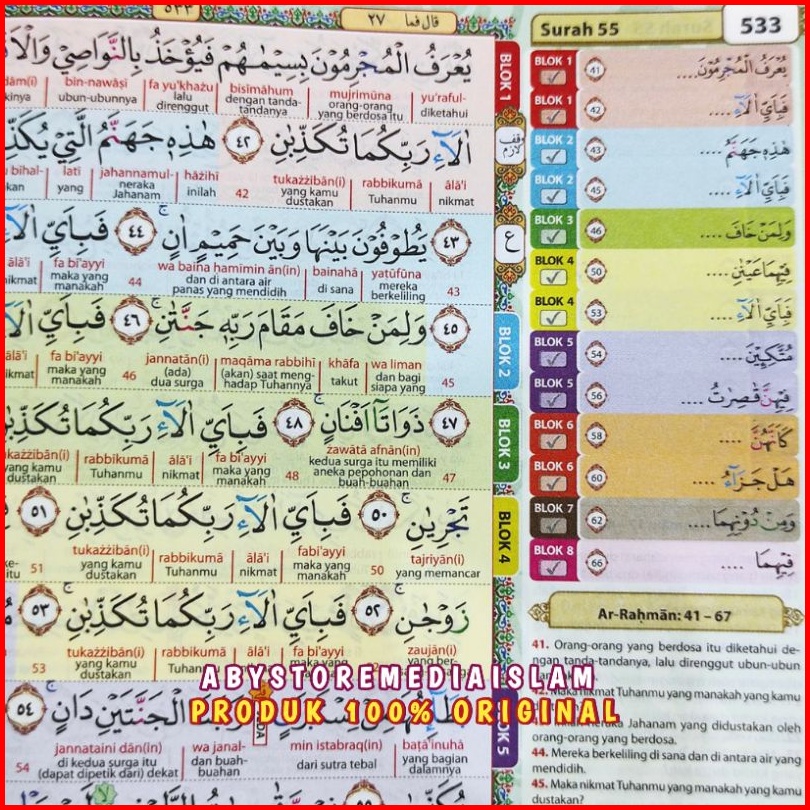 قال فما ٢٧
Surah 55
533
يُعْرَفُ الْمُجْرِمُوْنَ بِسِيْمٰىهُمْ فَيُؤْخَذُ بِالنَّوَاصِيْ
yu'raful- mujrimūna bisīmāhum fa yu'khażu bin-nawāṣī
diketahui orang-orang yang berdosa itu dengan tanda-tandanya lalu direnggut ubun-ubunnya
اٰلَاۤءِ رَبِّكُمَا تُكَذِّبٰنِ ٤٢ هٰذِهٖ جَهَنَّمُ الَّتِيْ
ālā'i rabbikumā tukażżibān(i) 42 hāżihī jahannamul- latī
nikmat Tuhanmu yang kamu dustakan inilah neraka Jahanam yang
٤٣ يَطُوْفُوْنَ بَيْنَهَا وَبَيْنَ حَمِيْمٍ اٰنٍ ٤٤ فَبِاَيِّ
43 yaṭūfūna bainahā wa baina ḥamīmin ān(in) 44 fa bi'ayyi ālā'i
mereka berkeliling di sana dan di antara air panas yang mendidih maka yang manakah
٤٥ وَلِمَنْ خَافَ مَقَامَ رَبِّهٖ جَنَّتٰنِ ٤٦ فَبِاَيِّ
45 wa liman khāfa maqāma rabbihī jannatān(i) 46 fa bi'ayyi
dan bagi siapa yang takut (akan) saat meng-hadap Tuhannya (ada) dua surga maka yang manakah
٤٧ ذَوَاتَآ اَفْنَانٍ ٤٨ فَبِاَيِّ اٰلَاۤءِ رَبِّكُمَا
47 żawātā afnān(in) 48 fa bi'ayyi ālā'i rabbikumā
kedua surga itu memiliki aneka pepohonan dan buah-buahan maka yang manakah nikmat Tuhanmu yang kamu dustakan
تَجْرِيٰنِ ٥٠ فَبِاَيِّ اٰلَاۤءِ رَبِّكُمَا تُكَذِّبٰنِ ٥١
tajriyān(i) 50 fabi'ayyi ālā'i rabbikumā tukażżibān(i) 51
yang memancar maka yang manakah nikmat Tuhanmu yang kamu dustakan
زَوْجٰنِ ٥٢ فَبِاَيِّ اٰلَاۤءِ رَبِّكُمَا تُكَذِّبٰنِ ٥٣
zaujān(i) fa bi'ayyi ālā'i rabbikumā tukażżibān(i) 53
maka yang manakah nikmat yang kamu dustakan
الْجَنَّتَيْنِ دَانٍ ٥٤
baṭā'inuhā min istabraq(in) wa janal- jannataini dān(in) 54
yang bagian dalamnya dari sutra tebal dan buah-buahan di kedua surga itu (dapat dipetik dari) dekat
BLOK 1
BLOK 2
BLOK 3
BLOK 4
BLOK 1 41 يُعْرَفُ الْمُجْرِمُوْنَ....
BLOK 1 42 فَبِاَيِّ اٰلَاۤءِ ....
BLOK 2 43 هٰذِهٖ جَهَنَّمُ ....
BLOK 2 45 فَبِاَيِّ اٰلَاۤءِ ....
BLOK 3 46 وَلِمَنْ خَافَ ....
BLOK 4 50 فِيْهِمَا عَيْنٰنِ ....
BLOK 4 53 فَبِاَيِّ اٰلَاۤءِ ....
BLOK 5 54 مُتَّكِـِٕيْنَ ....
BLOK 5 56 فِيْهِنَّ قٰصِرٰتُ ....
BLOK 6 58 كَاَنَّهُنَّ ....
BLOK 6 60 هَلْ جَزَاۤءُ ....
BLOK 7 62 وَمِنْ دُوْنِهِمَا ....
BLOK 8 66 فِيْهِمَا ....
Ar-Raḥmān: 41 – 67
41. Orang-orang yang berdosa itu diketahui de-
ngan tanda-tandanya, lalu direnggut ubun-ubun
42. Maka nikmat Tuhanmu yang manakah yang kamu
Jahanam yang didustakan oleh
orang-orang yang berdosa.
44. Mereka berkeliling di sana dan di antara air yang
mendidih.
45. Maka nikmat Tuhanmu yang manakah yang kamu
dustakan?
ABYSTOREMEDIAISLAM
PRODUK 100% ORIGINAL